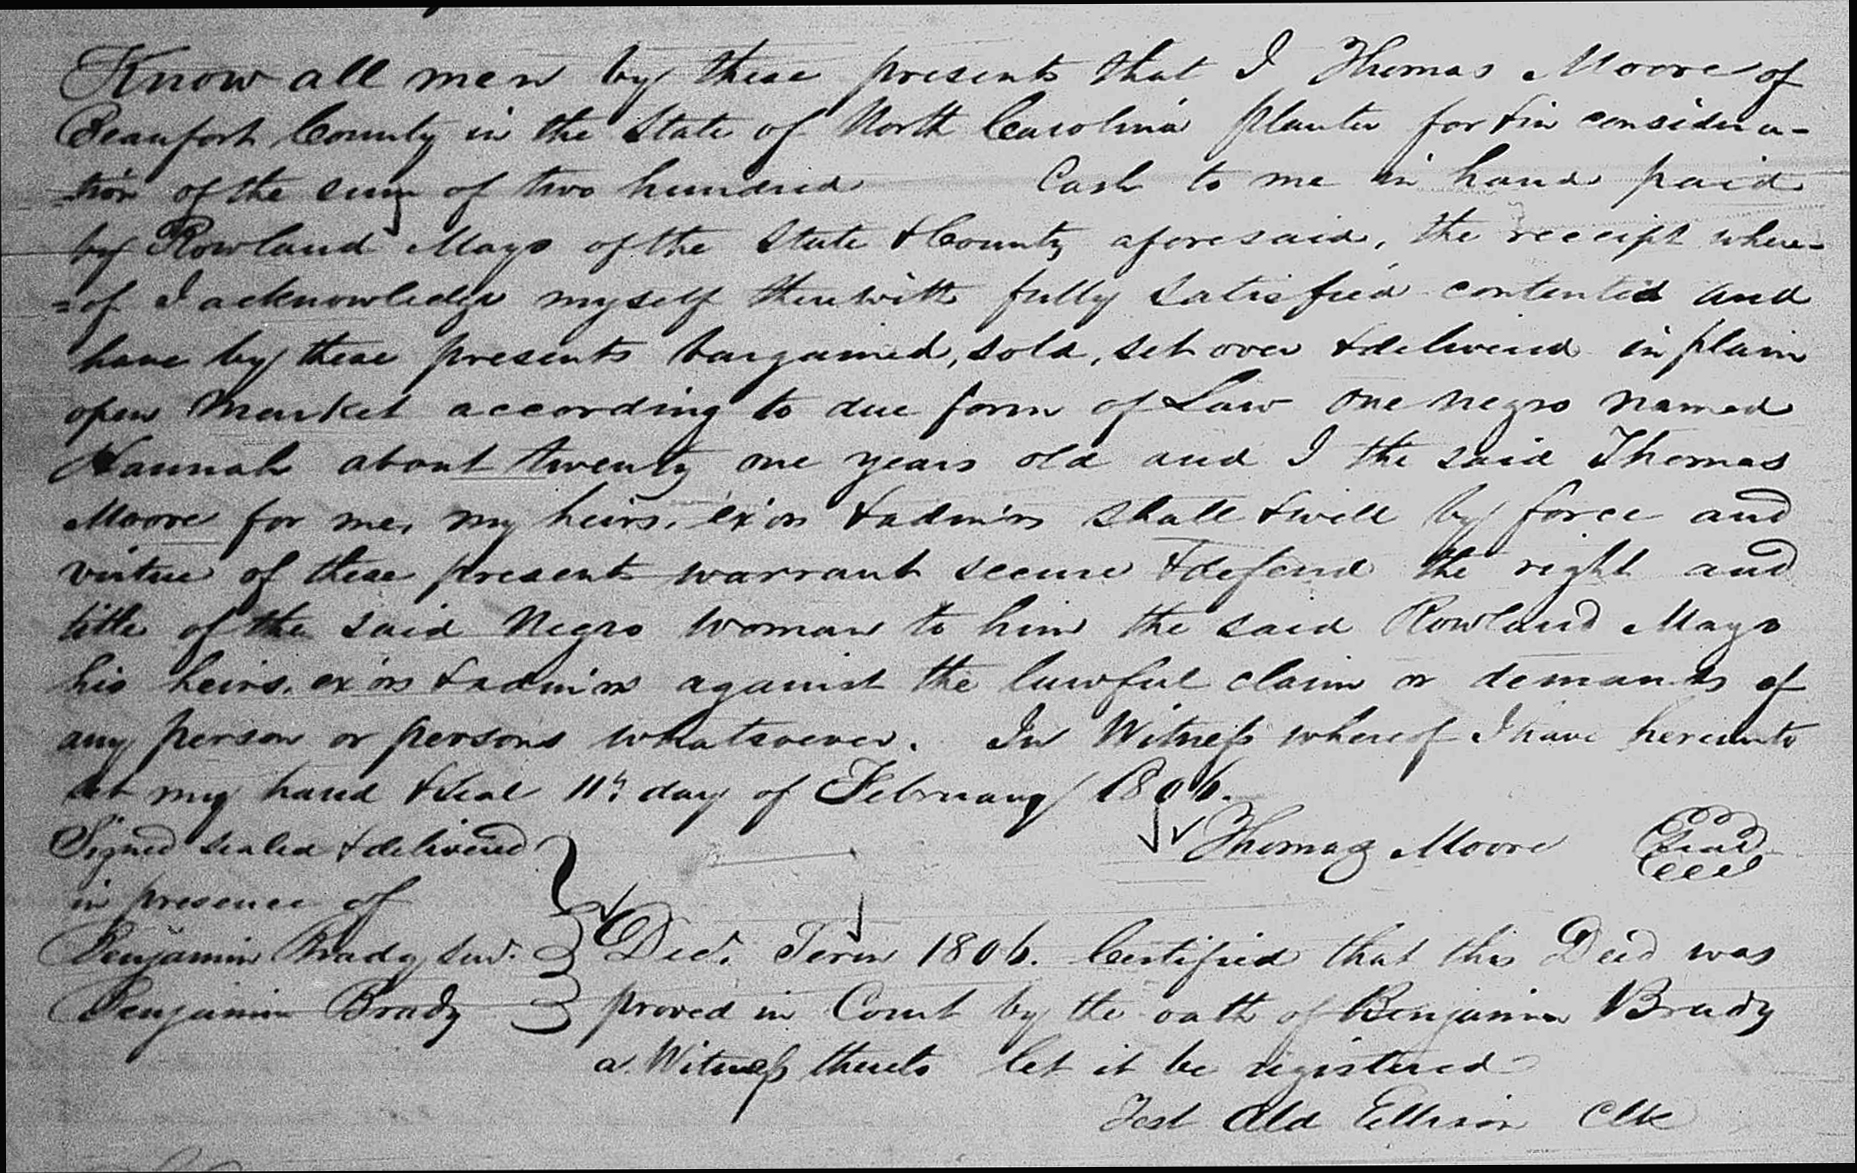 Know all men by these presents that I Thomas Moore of
Beaufort County in the State of North Carolina planter for & in considera-
=tion of the sum of two hundred Cash to me in hand paid
by Rowland Mayo of the State & County aforesaid, the receipt where=
=of I acknowledge myself therewith fully satisfied contented and
have by these presents bargained, sold, set over & delivered in plain
open Market according to due form of Law one negro named
Hannah about twenty one years old and I the said Thomas
Moore for me, my heirs, ex'ors & admin'rs shall & will by force and
virtue of these presents warrant secure & defend the right and
title of the said Negro woman to him the said Rowland Mayo
his heirs, ex'ors & admin'rs against the lawful claim or demands of
any person or persons whatsoever. In Witness whereof I have hereunto
set my hand & seal 11th day of February 1806.
Thomas Moore Seal
Signed sealed & delivered
in presence of
Benjamin Brady Sen'r.
Benjamin Brady
Dec'r. Term 1806. Certified that this Deed was
proved in Court by the oath of Benjamin Brady
a Witness thereto let it be registered
Test Ald Ellison Clk